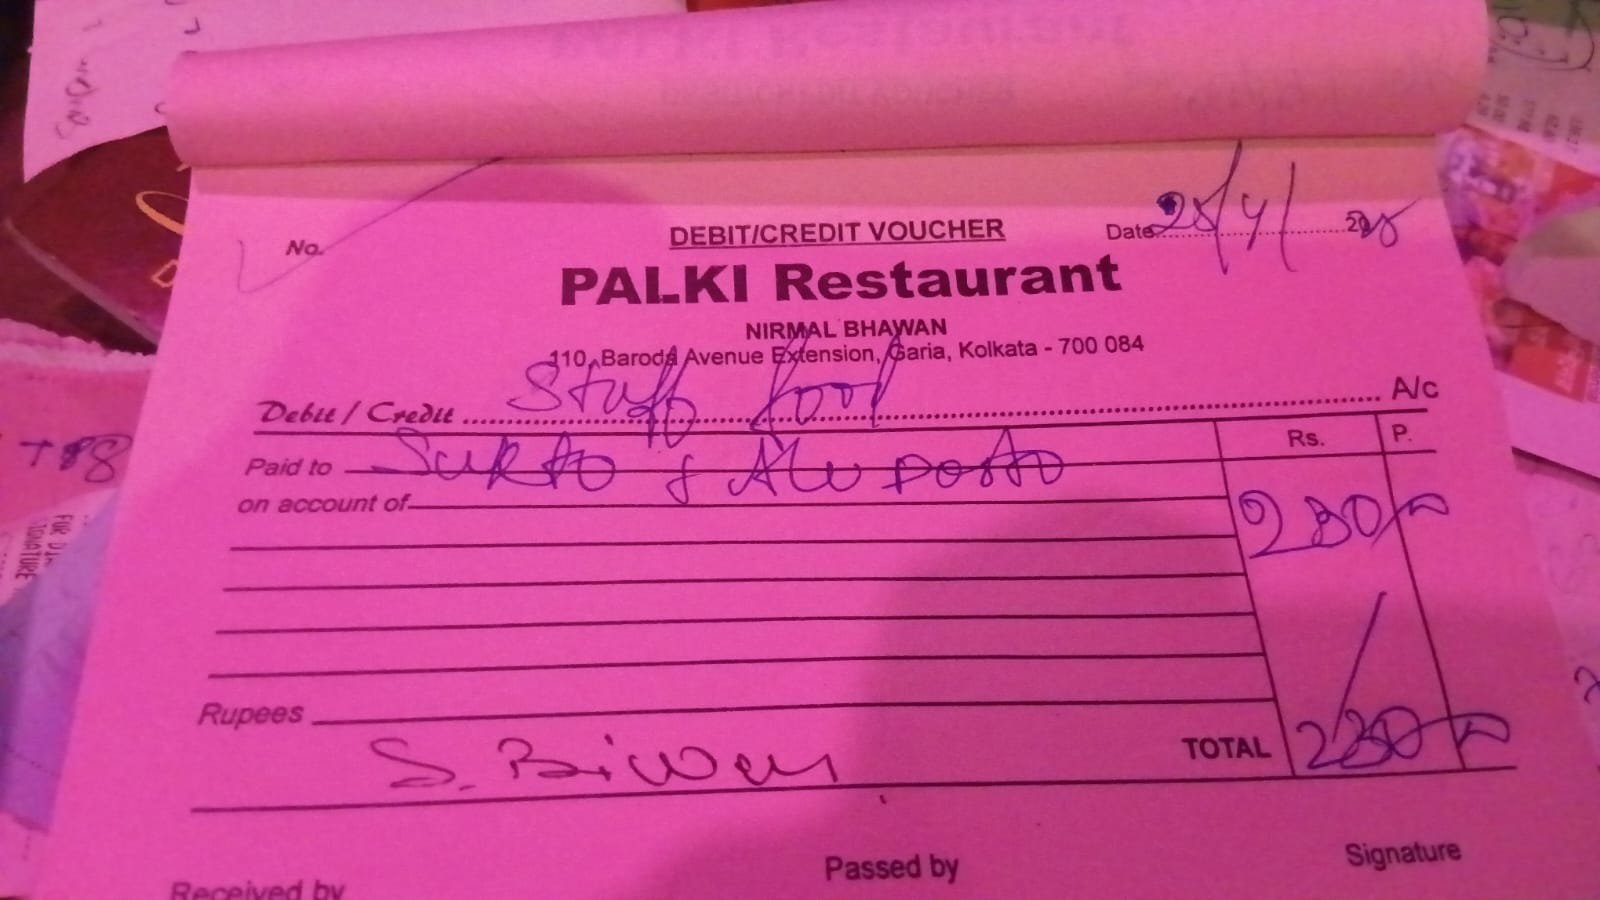 No.
DEBIT/CREDIT VOUCHER
Date 25/4/ 2025
PALKI Restaurant
NIRMAL BHAWAN
110, Baroda Avenue Extension, Garia, Kolkata - 700 084
Debit / Credit Staff food A/c
Rs. P.
Paid to Sukto & Alu posto
on account of 230/-
Rupees
S. Biswas TOTAL 230/-
Received by Passed by Signature